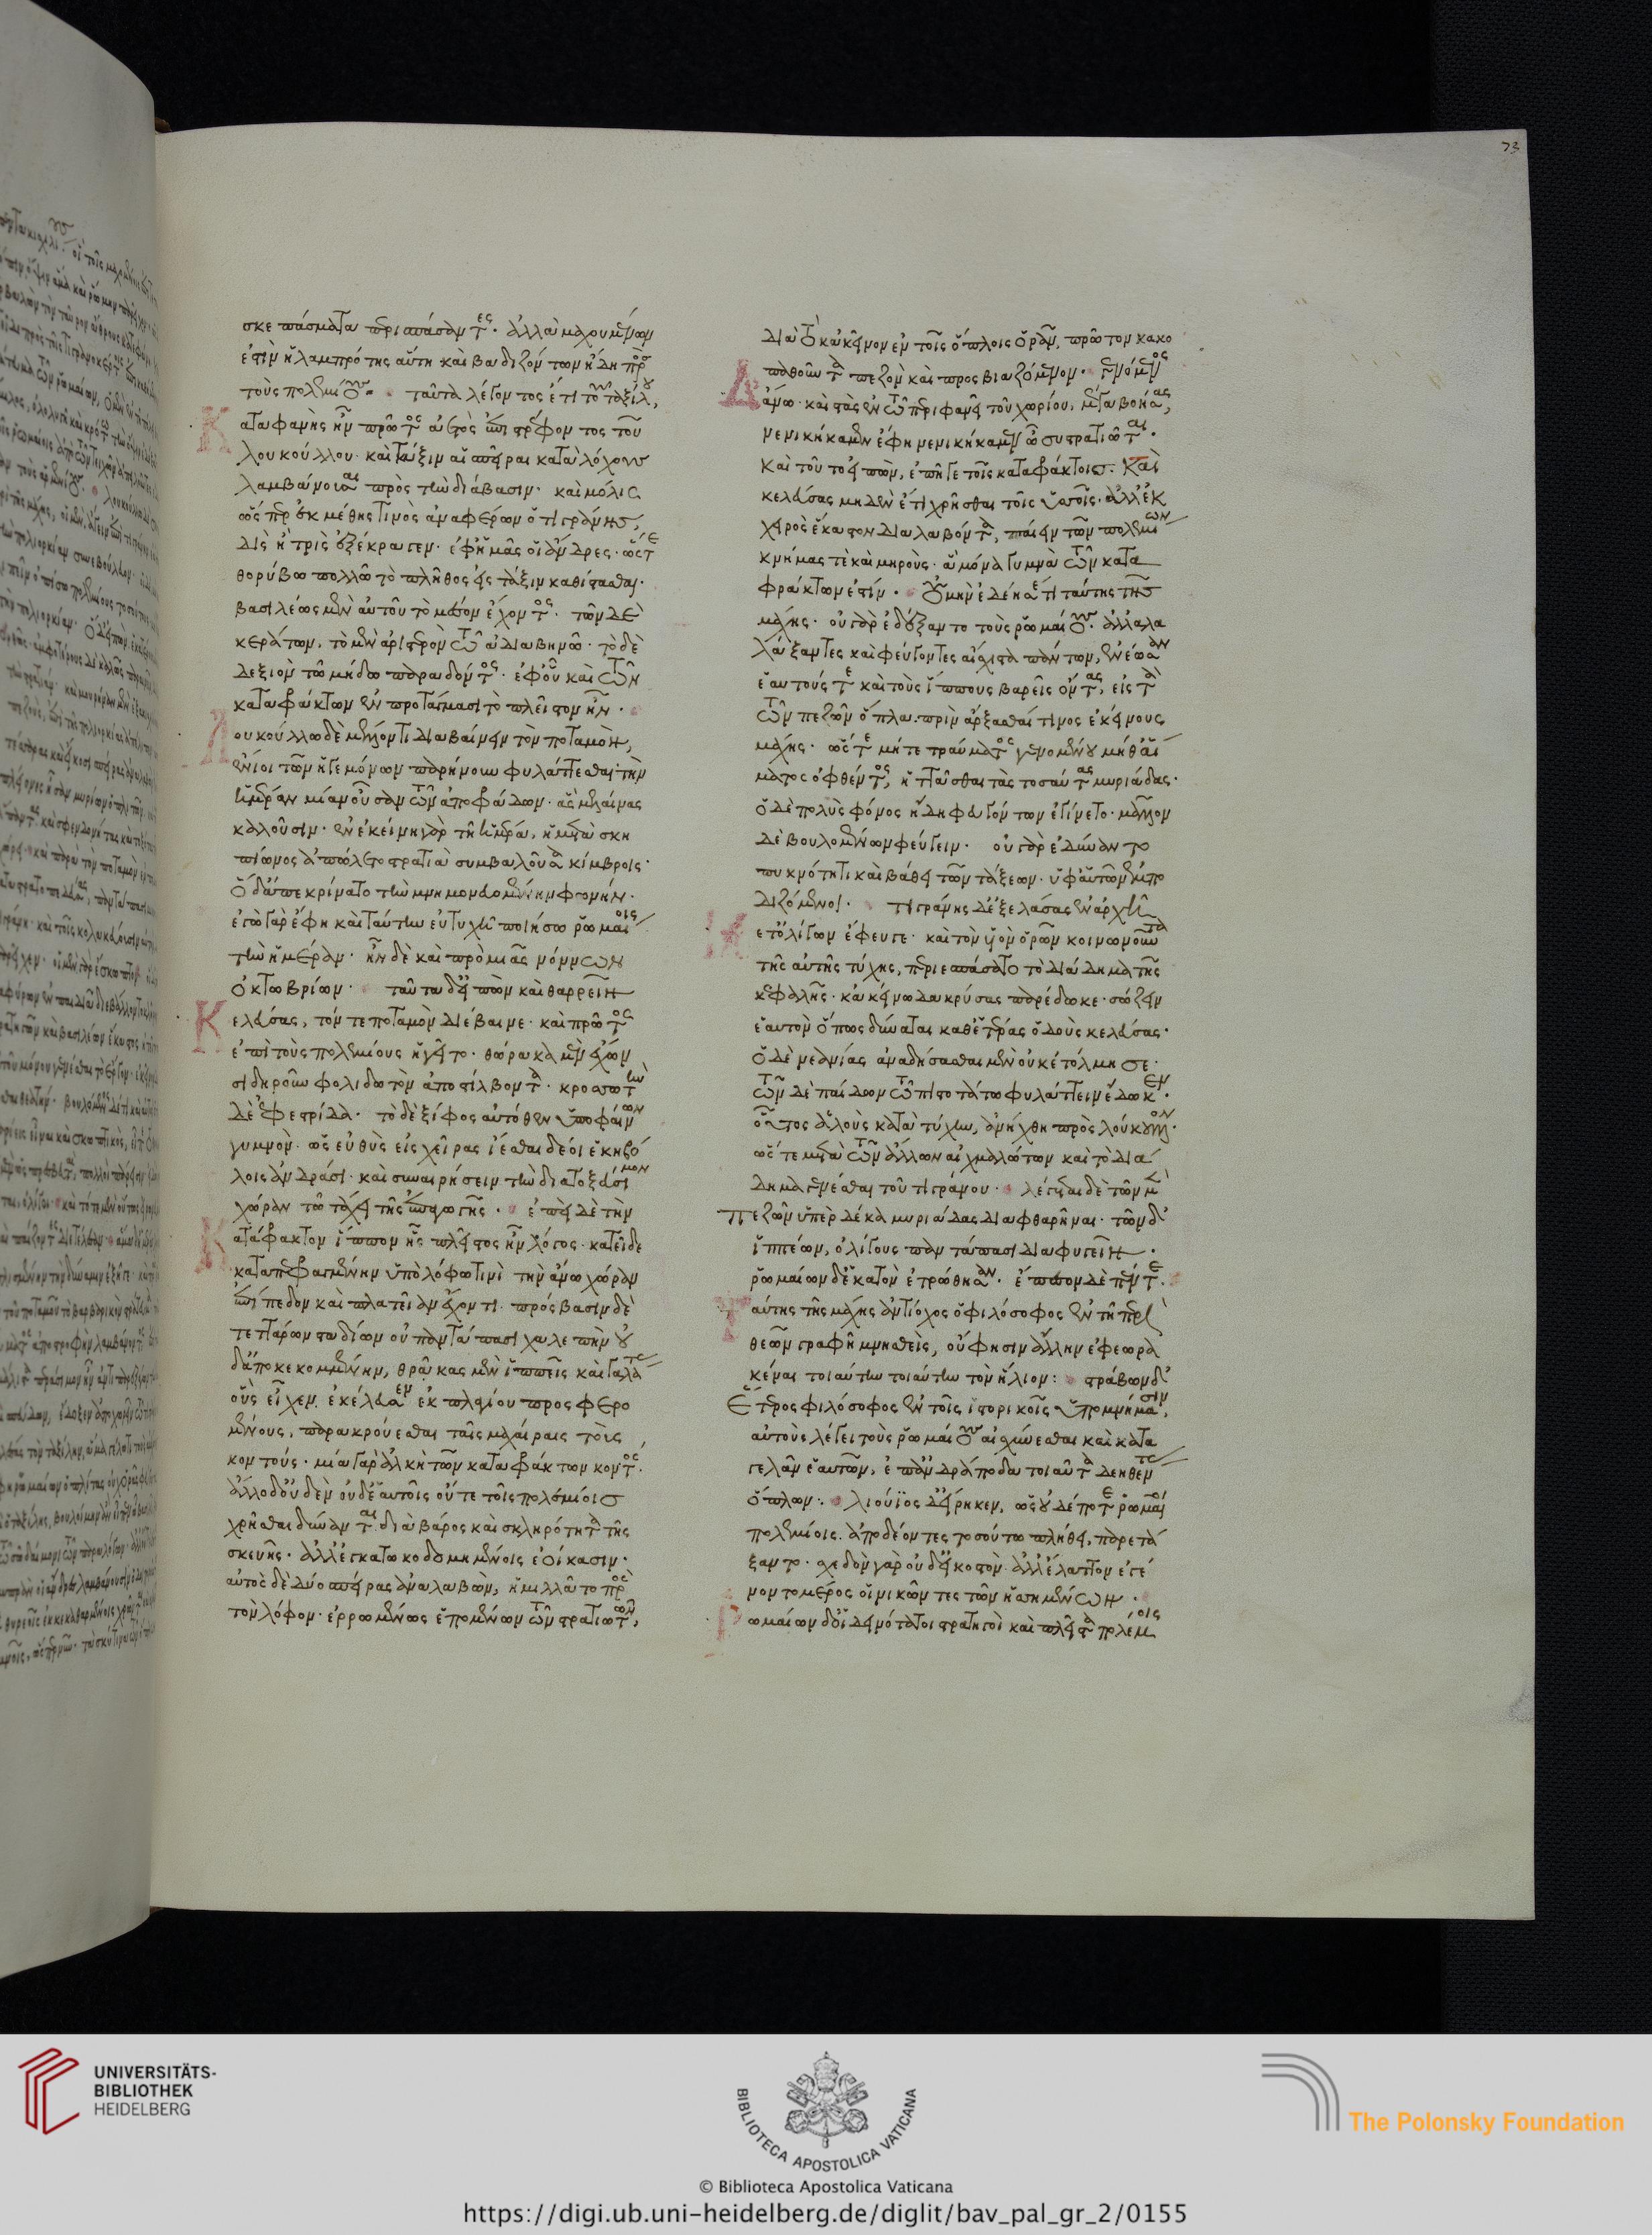 σκεπάσματα περισπάσαντες· ἀλλὰ μαχουμένων
ἐστὶν ἡ λαμπρότης αὕτη καὶ βαδιζόντων ἤδη πρὸς
τοὺς πολεμίους· ταῦτα λέγοντος ἔτι τοῦ ταξίλου,
Καταφανὴς ἦν πρῶτος ἀετὸς ἐπιστρέφοντος τοῦ
λουκούλλου· καὶ τάξιν αἱ σπεῖραι κατὰ λόχους
λαμβάνουσαι πρὸς τὴν διάβασιν· καὶ μόλις
ὥσπερ ἐκ μέθης τινὸς ἀναφέρων ὁ τιγράνης,
δὶς ἢ τρὶς ἐξέκραγεν· ἐφ' ἡμᾶς οἱ ἄνδρες· ὥστε
θορύβω πολλῶ τὸ πλῆθος εἰς τάξιν καθίστασθαι·
βασιλέως μὲν αὐτοῦ τὸ μέσον ἔχοντος· τῶν δὲ
κεράτων, τὸ μὲν ἀριστερὸν τῶ ἀδιαβηνῶ· τὸ δὲ
δεξιὸν τῶ μήδω παραδόντος· ἐφ' οὗ καὶ τῶν
καταφράκτων ἐν προτάγμασι τὸ πλεῖστον ἦν·
Λουκούλλω δὲ μέλλοντι διαβαίνειν τὸν ποταμὸν,
ἔνιοι τῶν ἡγεμόνων παρήνουν φυλάττεσθαι τὴν
ἡμέραν μίαν οὖσαν τῶν ἀποφράδων· ἃς μελαίνας
καλοῦσιν· ἐν ἐκείνη γὰρ τῆ ἡμέρα, ἡ μετὰ σκη
πίωνος ἀπώλετο στρατιὰ συμβαλοῦσα κίμβροις·
Ὁ δ' ἀπεκρίνατο τὴν μνημονευομένην φωνήν·
ἐγὼ γὰρ ἔφη καὶ ταύτην εὐτυχῆ ποιήσω ῥωμαίοις
τὴν ἡμέραν· ἦν δὲ καὶ πρὸ μιᾶς νόννων
ὀκτωβρίων· ταῦτα δ' εἰπὼν καὶ θαρρεῖν
Κελεύσας, τόν τε ποταμὸν διέβαινε· καὶ πρῶτος
ἐπὶ τοὺς πολεμίους ἡγεῖτο· θώρακα μὲν ἔχων
σιδηροῦν φολιδωτὸν ἀποστίλβοντα· κροσσωτὴν
δὲ ἐφεστρίδα· τὸ δὲ ξίφος αὐτόθεν ὑποφαίνων
γυμνὸν· ὡς εὐθὺς εἰς χεῖρας ἰέσθαι δέοι ἑκηβό
λοις ἀνδράσι· καὶ συναιρήσειν τὴν διατοξεύσιμον
χώραν τῶ τάχει τῆς ἐπαγωγῆς· ἐπεὶ δὲ τὴν
Κατάφρακτον ἵππον ἧς πλεῖστος ἦν λόγος· κατεῖδε
κατατεταγμένην ὑπὸ λόφω τινὶ τὴν ἄνω χώραν
ἐπίπεδον καὶ πλατεῖαν ἔχοντι· πρόσβασιν δὲ
τεττάρων σταδίων οὐ παντάπασι χαλεπὴν οὐ
δ' ἀποκεκομμένην, θρᾶκας μὲν ἱππεῖς καὶ γαλάτας
οὓς εἶχεν, ἐκέλευσεν ἐκ πλαγίου προσφερο
μένους, παρακρούεσθαι ταῖς μαχαίραις τοὺς
κοντούς· μία γὰρ ἀλκὴ τῶν καταφράκτων κοντός·
ἄλλο δ' οὐδὲν οὐδ' ἑαυτοῖς οὔτε τοῖς πολεμίοις
χρῆσθαι δύνανται διὰ βάρος καὶ σκληρότητα τῆς
σκευῆς· ἀλλ' ἐγκατωκοδομημένοις ἐοίκασιν·
αὐτὸς δὲ δύο σπείρας ἀναλαβὼν, ἡμιλλᾶτο πρὸς
τὸν λόφον· ἐρρωμένως ἑπομένων τῶν στρατιωτῶν,
διὰ τὸ κἀκεῖνον ἐν τοῖς ὅπλοις ὁρᾶν, πρῶτον κακο
παθοῦντα πεζὸν καὶ προσβιαζόμενον· γενόμενος
Δ' ἄνω· καὶ στὰς ἐν τῶ περιφανεῖ τοῦ χωρίου, μέγα βοήσας,
νενικήκαμεν ἔφη νενικήκαμεν ὦ συστρατιῶται·
καὶ τοῦτο εἰπὼν, ἐπῆγε τοῖς καταφράκτοις· Καὶ
κελεύσας μηδὲν ἔτι χρῆσθαι τοῖς ὑσσοῖς· ἀλλ' ἐκ
χειρὸς ἕκαστον διαλαβόντα, παίειν τῶν πολεμίων
κνήμας τὲ καὶ μηροὺς· ἃ μόνα γυμνὰ τῶν κατα
φράκτων ἐστίν· Οὐ μὴν ἐδέησέ τι ταύτης τῆς
μάχης· οὐ γὰρ ἐδέξαντο τοὺς ῥωμαίους· ἀλλ' ἀλα
λάξαντες καὶ φεύγοντες αἴσχιστα πάντων, ἐνέωσαν
ἑαυτούς τε καὶ τοὺς ἵππους βαρεῖς ὄντας, εἰς τὰ
τῶν πεζῶν ὅπλα· πρὶν ἄρξασθαί τινος ἐκείνους
μάχης· ὥστε μήτε τραύματος γενομένου μήθ' αἵ
ματος ὀφθέντος, ἡττᾶσθαι τὰς τοσαύτας μυριάδας·
Ὁ δὲ πολὺς φόνος ἤδη φευγόντων ἐγίνετο· μᾶλλον
δὲ βουλομένων φεύγειν· οὐ γὰρ ἐδύναντο
πυκνότητι καὶ βάθει τῶν τάξεων· ὑφ' αὑτῶν ἐμπο
διζόμενοι· τιγράνης δ' ἐξελάσας ἐν ἀρχῆ
Μετ' ὀλίγων ἔφευγε· καὶ τὸν υἱὸν ὁρῶν κοινωνοῦντα
τῆς αὐτῆς τύχης, περιεσπάσατο τὸ διάδημα τῆς
κεφαλῆς· κἀκείνω δακρύσας παρέδωκε· σώζειν
ἑαυτὸν ὅπως δύναται καθ' ἑτέρας ὁδοὺς κελεύσας·
Ὁ δὲ νεανίας ἀναδήσασθαι μὲν οὐκ ἐτόλμησε·
τῶν δὲ παίδων τῶ πιστοτάτω φυλάττειν ἔδωκεν·
οὗτος ἁλοὺς κατὰ τύχην, ἀνήχθη πρὸς λούκουλλον·
ὥστε μετὰ τῶν ἄλλων αἰχμαλώτων καὶ τὸ διά
δημα γενέσθαι τοῦ τιγράνου· λέγεται δὲ τῶν μὲν
πεζῶν ὑπὲρ δέκα μυριάδας διαφθαρῆναι· τῶν δ'
ἱππέων, ὀλίγους παντάπασι διαφυγεῖν·
ῥωμαίων δ' ἑκατὸν ἐτρώθησαν· ἔπεσον δὲ πέντε·
Ταύτης τῆς μάχης ἀντίοχος ὁ φιλόσοφος ἐν τῆ περὶ
θεῶν γραφῆ μνησθεὶς, οὔ φησιν ἄλλην ἐφεωρα
κέναι τοιαύτην τοιαύτην τὸν ἥλιον: στράβων δ'
Ἕτερος φιλόσοφος ἐν τοῖς ἱστορικοῖς ὑπομνήμασιν,
αὐτοὺς λέγει τοὺς ῥωμαίους αἰσχύνεσθαι καὶ κατα
γελᾶν ἑαυτῶν, ἐπ' ἀνδράποδα τοιαῦτα δεηθέντας
ὅπλων: λιούϊος δ' εἴρηκεν, ὡς οὐδέποτε ῥωμαῖοι
πολεμίοις ἀποδέοντες τοσούτω πλήθει, παρετά
ξαντο· σχεδὸν γὰρ οὐδ' εἰκοστὸν ἀλλ' ἔλαττον ἐγέ
νοντο μέρος οἱ νικῶντες τῶν ἡσσημένων·
Ῥωμαίων δ' οἱ δεινότατοι στρατηγοὶ καὶ πλεῖστα πολέμοις
73
UNIVERSITÄTS-
BIBLIOTHEK
HEIDELBERG
BIBLIOTECA APOSTOLICA VATICANA
The Polonsky Foundation
© Biblioteca Apostolica Vaticana
https://digi.ub.uni-heidelberg.de/diglit/bav_pal_gr_2/0155